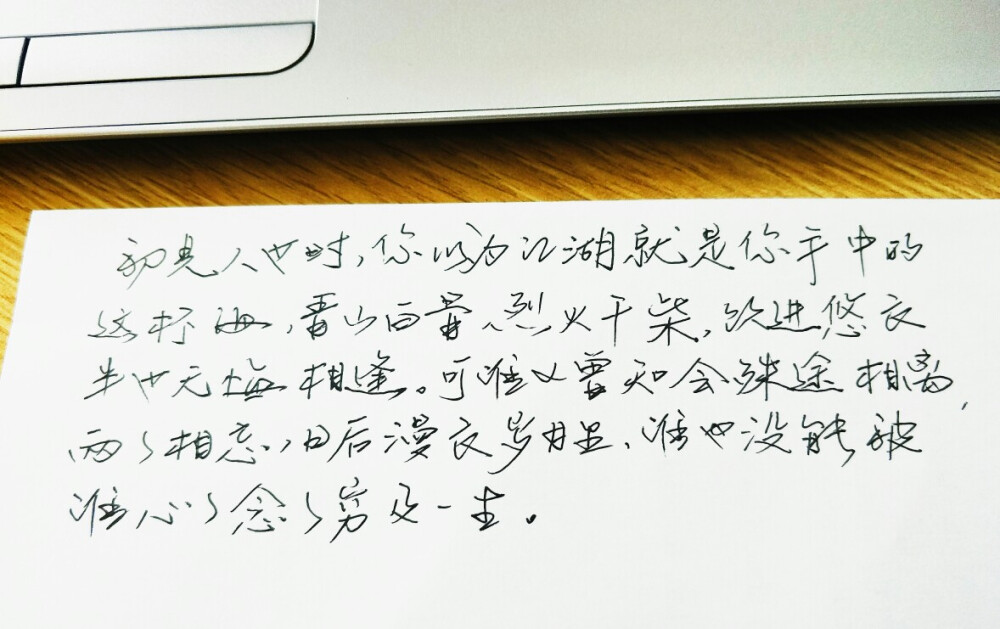 初见人世时,你以为江湖就是你手中的
这杯酒,看山百量、烈火干柴,欢进悠长
半世无悔相逢。可谁又曾知会殊途相离,
两々相忘,日后漫长岁月里、谁也没能被
谁心々念々穷及一生。